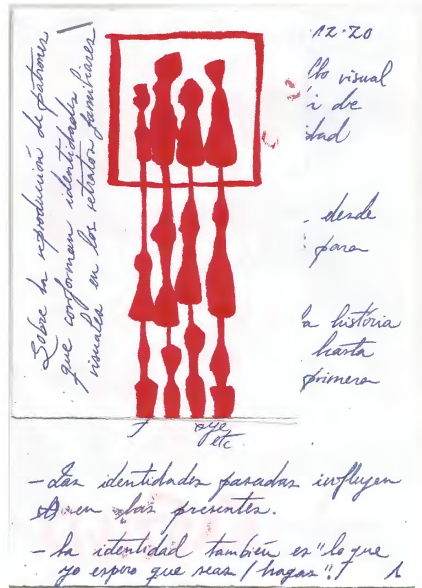 Sobre la reproducción de patrones
que conforman identidades
visuales en los retratos familiares
12-20
visual
de
desde
para
la história
hasta
primera
etc.
- Las identidades pasadas influyen
en las presentes.
- la identidad también es "lo que
yo espero que seas / hagas"!